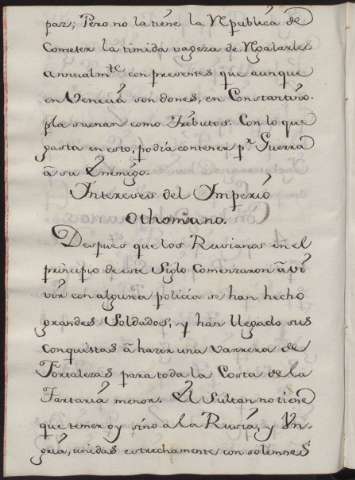 paz; Pero no la tiene la Republica de
Cometer la timida vageza de Regalarle
annualm.te con presentes que aunque
en Venecia son dones, en Constantino-
pla suenan como tributos. Con lo que
gasta en esto, podia contener p.r Guerra
â su Enemigo.
Intereses del Imperio
Othomano.
Despues que los Rusianos en el
principio de este Siglo Comenzaron â vi-
vir con alguna policia se han hecho
grandes Soldados, y han llegado sus
conquistas â hazer una varrera de
Fortalezas para toda la Costa de la
Tartaria menor. El Sultan no tiene
que temer oy sino â la Rusia, y Un-
gria, unidas estrechamente con solemnes